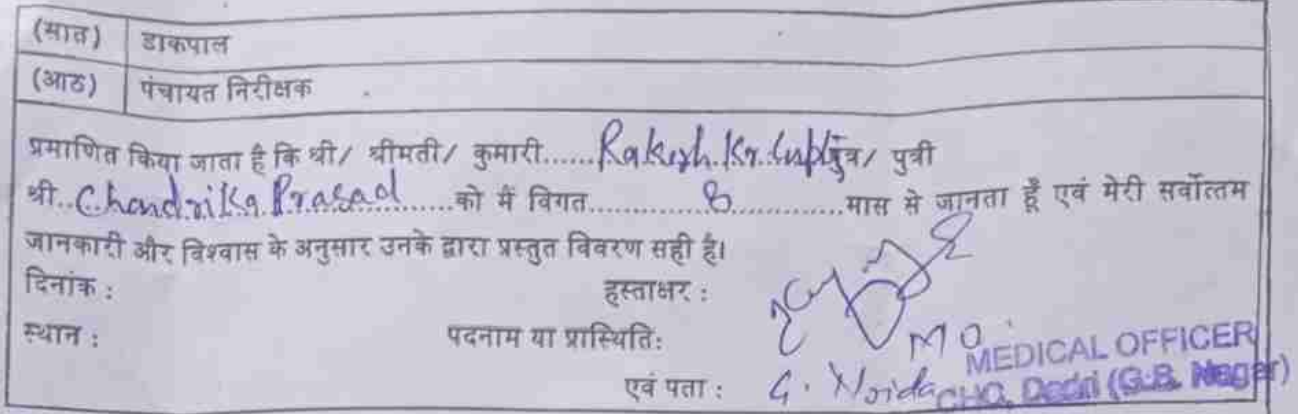 (सात) डाकपाल
(आठ) पंचायत निरीक्षक
प्रमाणित किया जाता है कि श्री/ श्रीमती/ कुमारी......Rakesh.Kr.Gupta पुत्र/ पुत्री
श्री..Chandrika Prasad..........को मैं विगत..............8..............मास से जानता हूँ एवं मेरी सर्वोत्तम
जानकारी और विश्वास के अनुसार उनके द्वारा प्रस्तुत विवरण सही है।
दिनांक : हस्ताक्षर :
स्थान : पदनाम या प्रास्थिति: M O
MEDICAL OFFICER
एवं पता : G. Noida CHC, Dadri (G.B. Nagar)